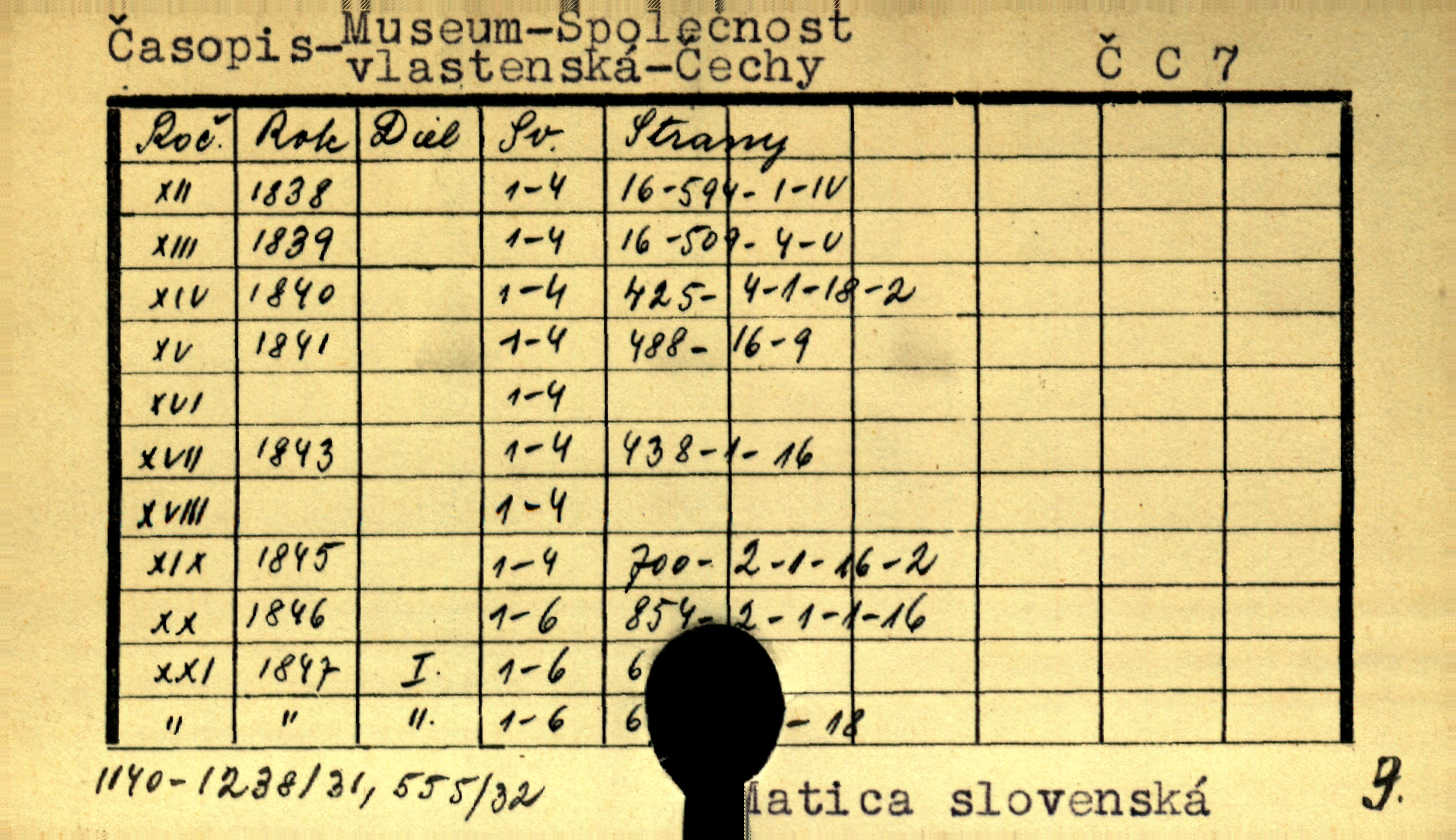 Časopis-Museum-Společnost
vlastenská-Čechy
Č C 7
Roč. Rok Diel Sv. Strany
XII 1838 1-4 16-594-1-IV
XIII 1839 1-4 16-509-4-V
XIV 1840 1-4 425-4-1-18-2
XV 1841 1-4 488-16-9
XVI 1-4
XVII 1843 1-4 438-1-16
XVIII 1-4
XIX 1845 1-4 700-2-1-16-2
XX 1846 1-6 854-2-1-1-16
XXI 1847 I. 1-6 6
" " II. 1-6 6 -18
1140-1238/31, 555/32
Matica slovenská
9.